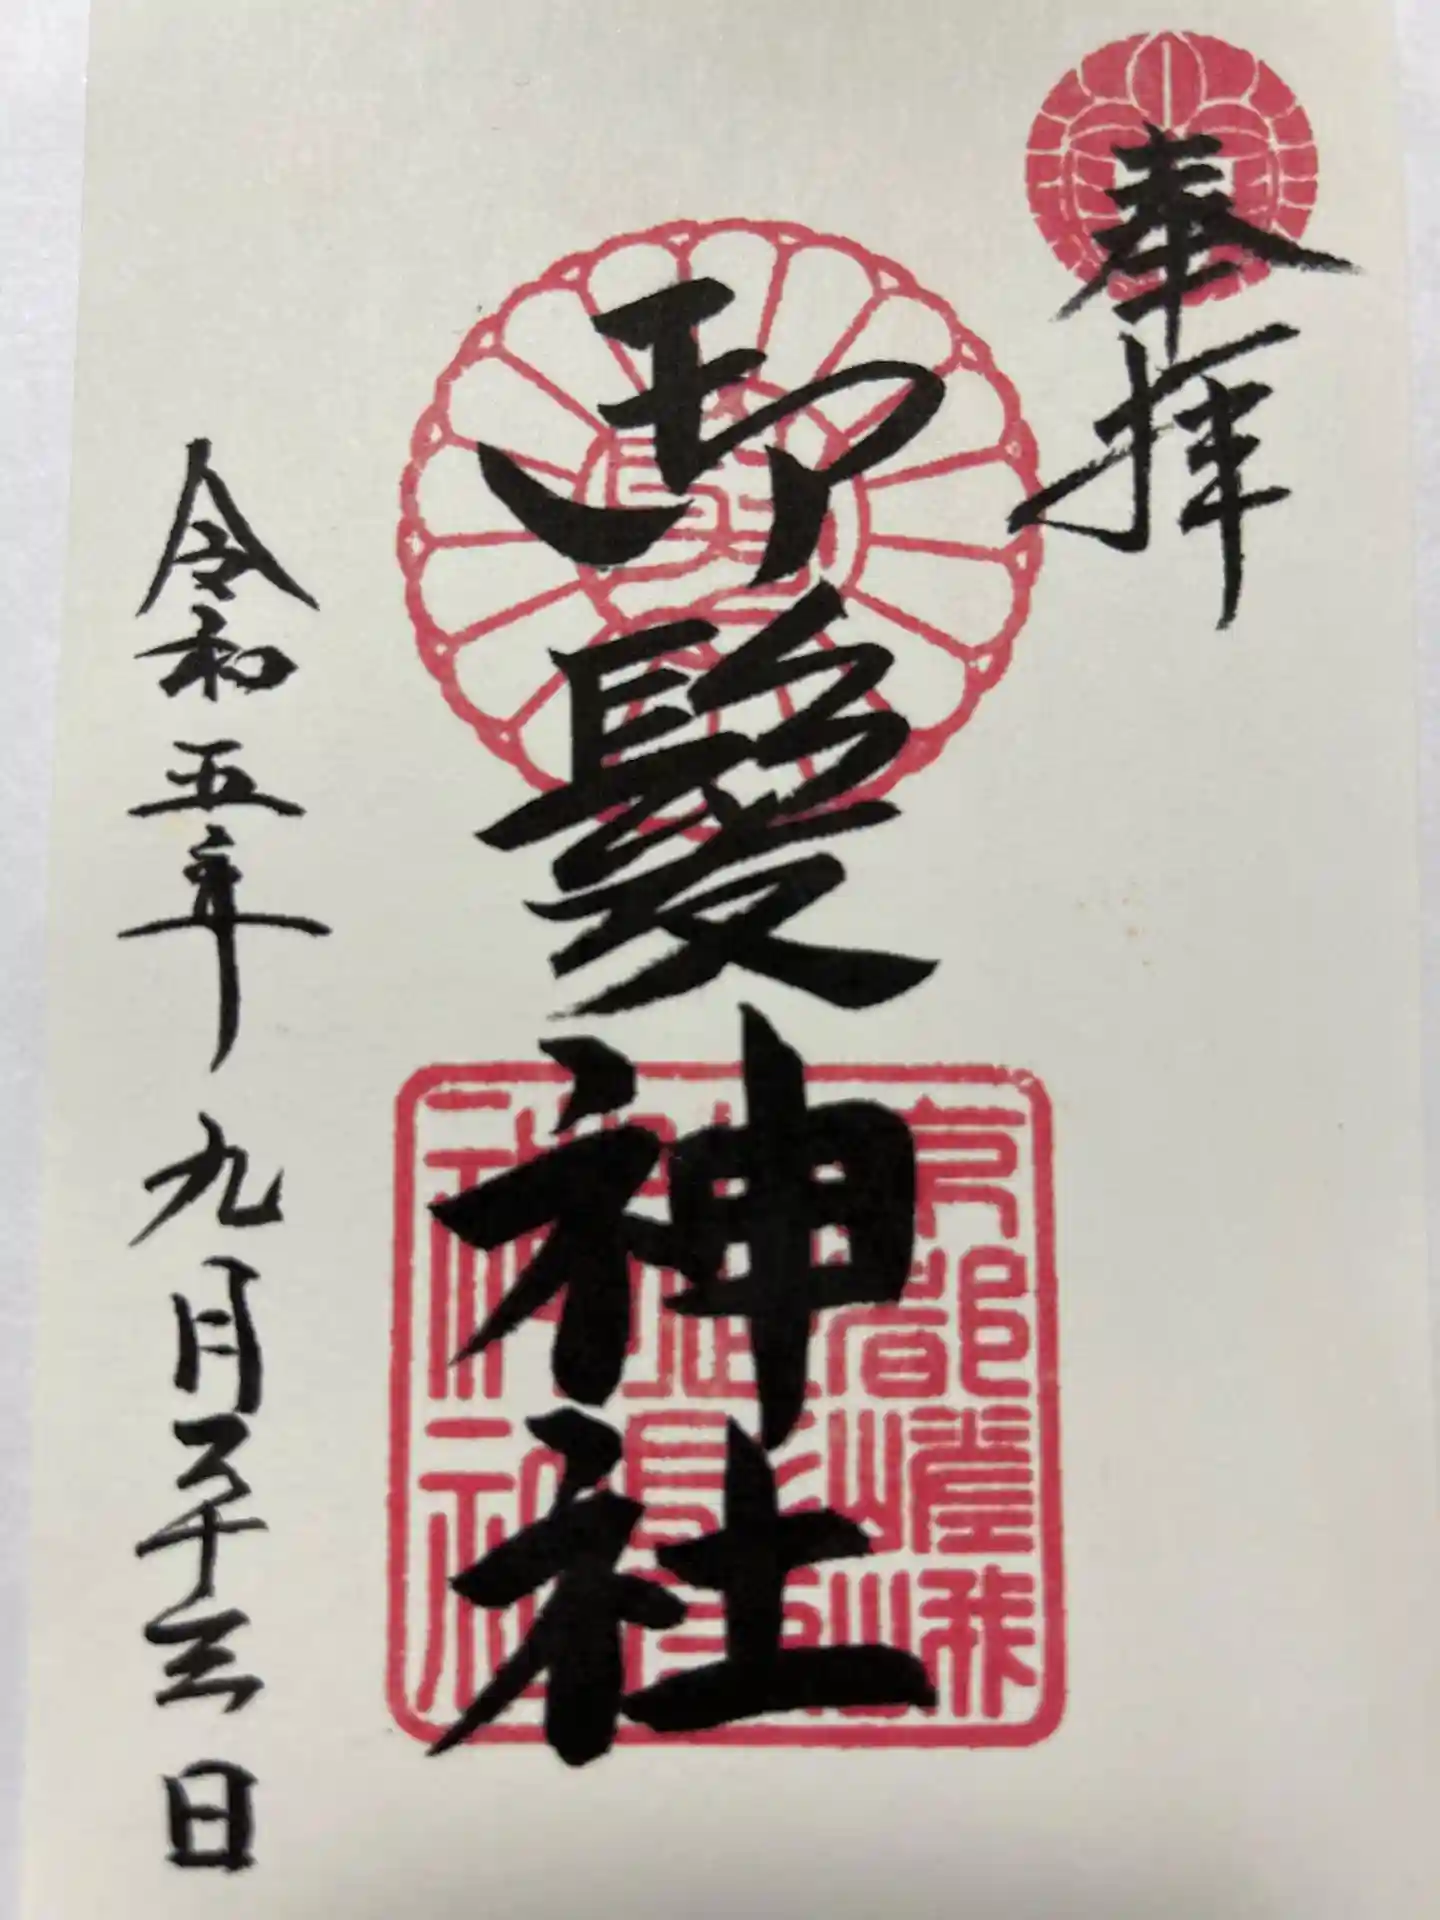 奉拝
御髪神社
京都嵯峨
御髪
神社
令和五年九月二十三日